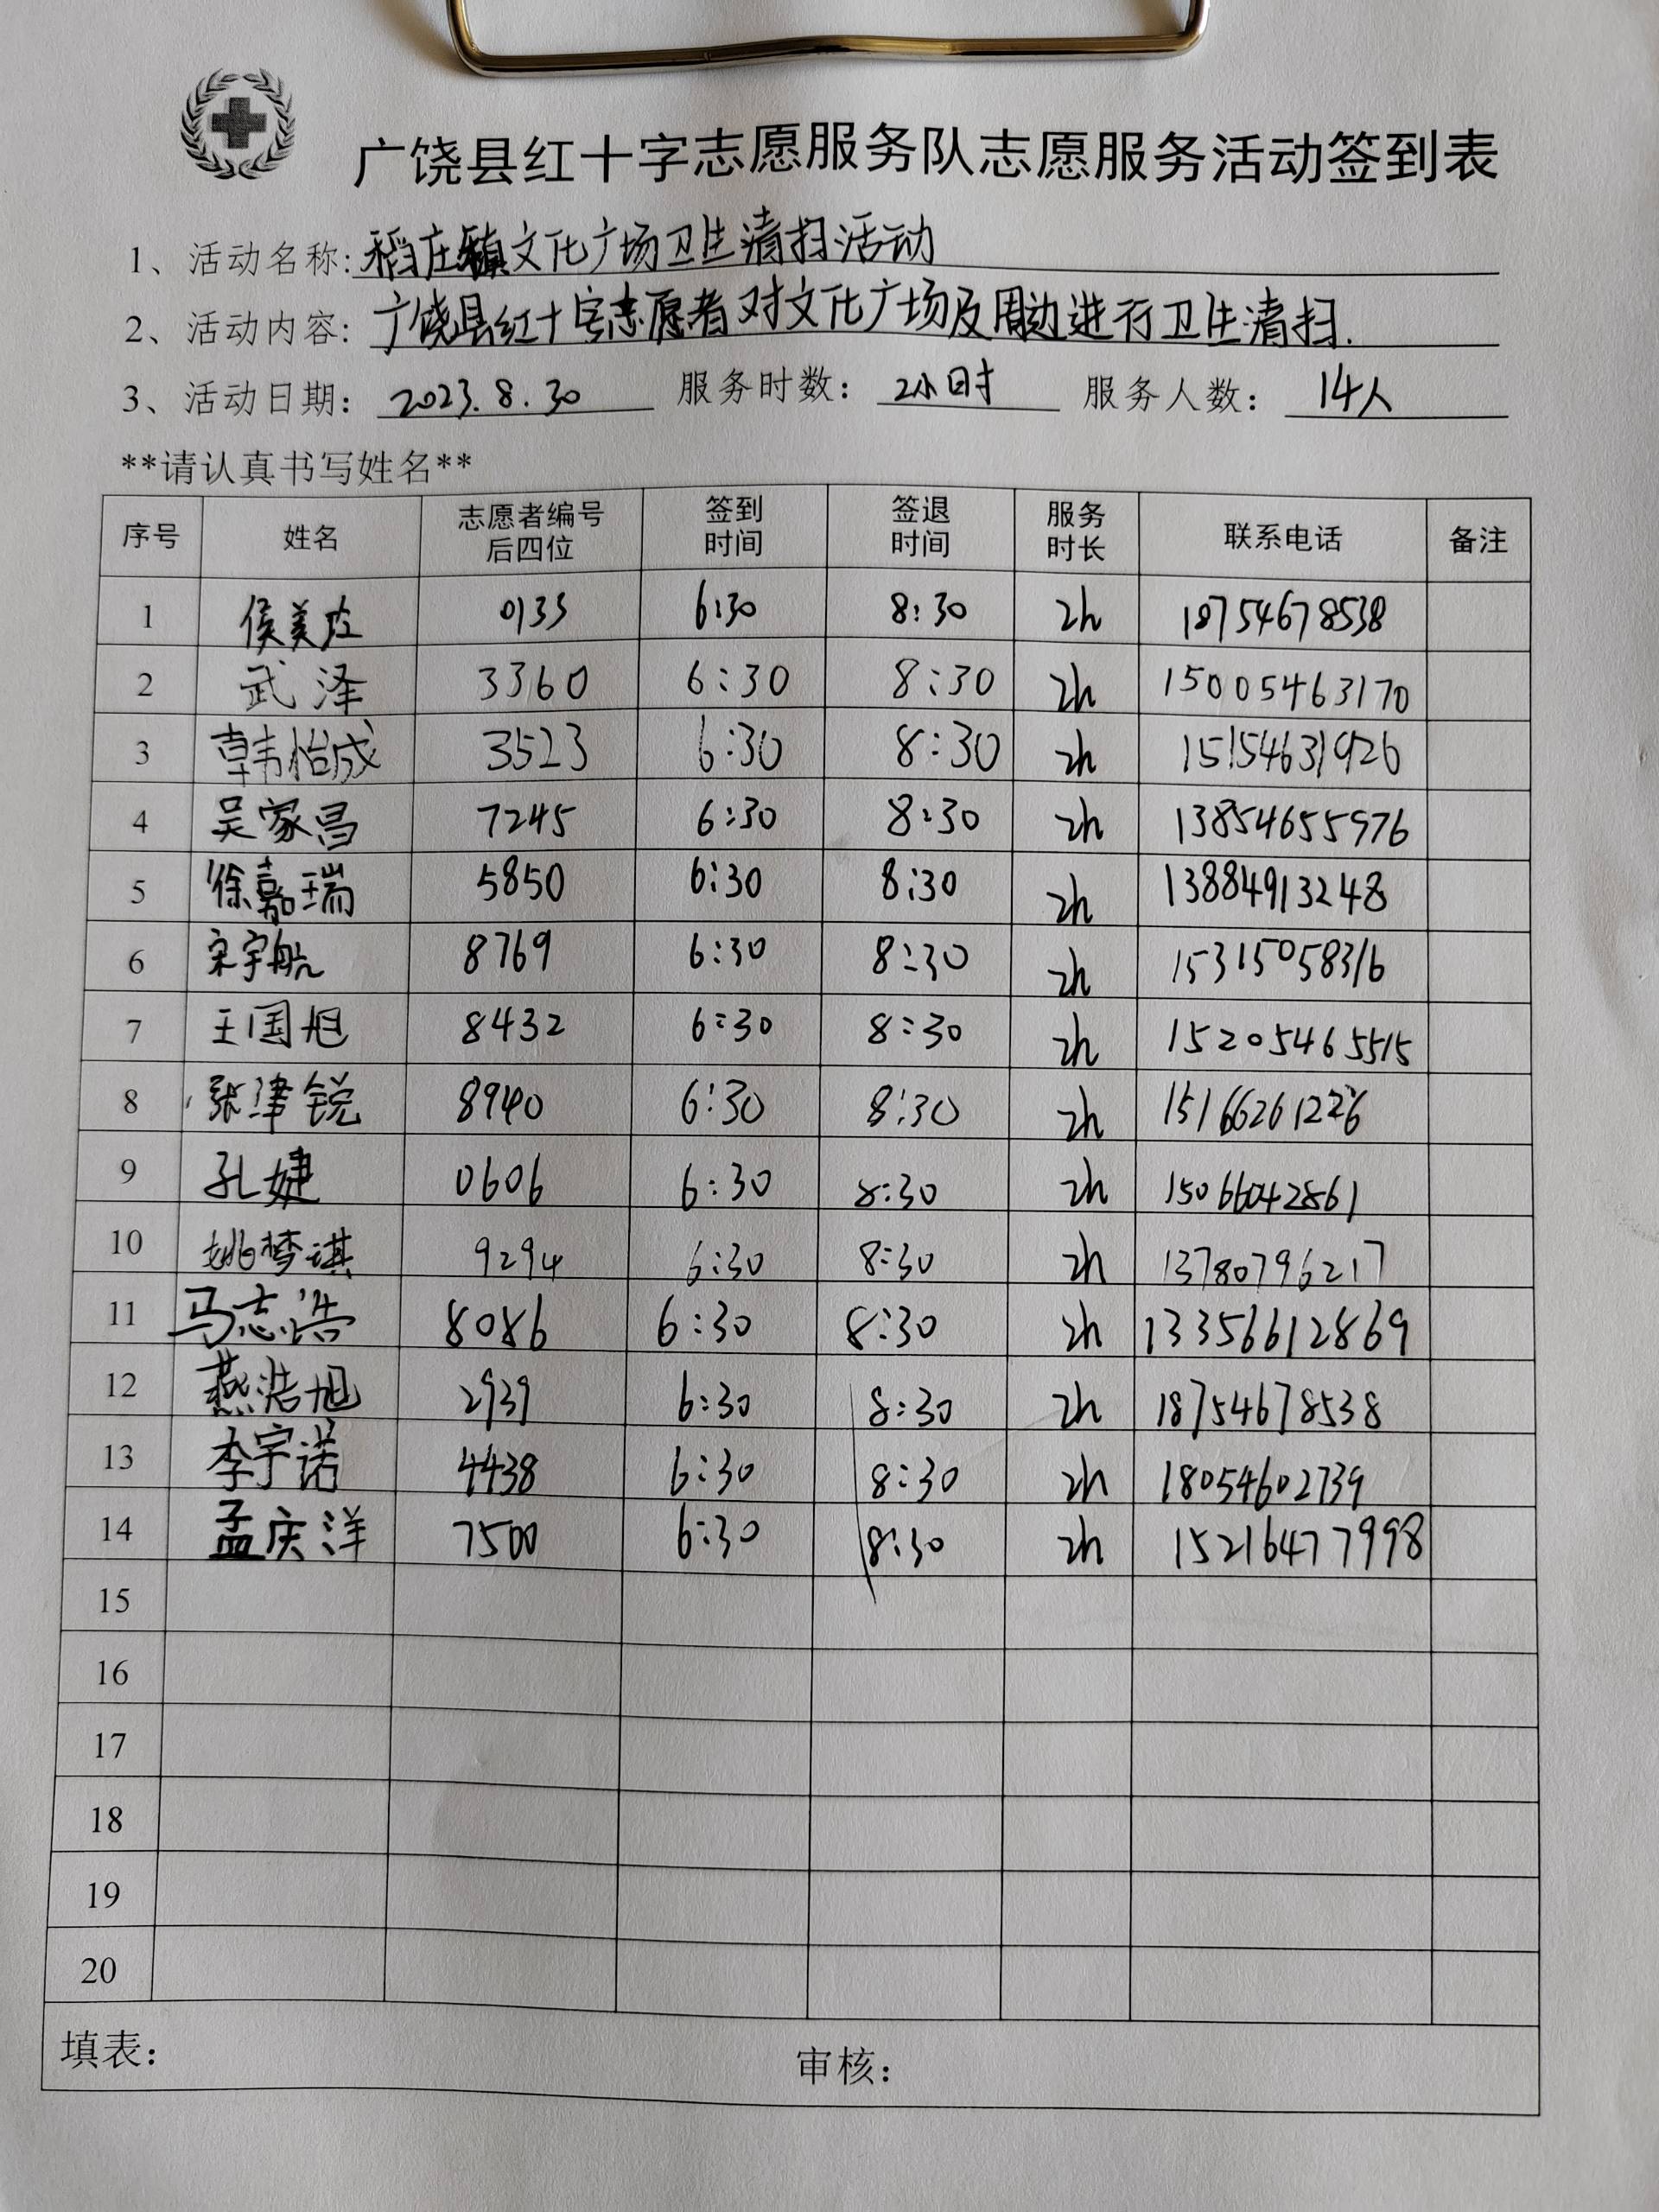 广饶县红十字志愿服务队志愿服务活动签到表
1、活动名称:稻庄镇文化广场卫生清扫活动
2、活动内容:广饶县红十字志愿者对文化广场及周边进行卫生清扫.
3、活动日期:2023.8.30 服务时数:2小时 服务人数:14人
**请认真书写姓名**
序号 姓名 志愿者编号后四位 签到时间 签退时间 服务时长 联系电话 备注
1 侯美 0133 6:30 8:30 2h 18754678538
2 武泽 3360 6:30 8:30 2h 15005463170
3 韩怡成 3523 6:30 8:30 2h 15154631926
4 吴家昌 7245 6:30 8:30 2h 13854655976
5 徐嘉瑞 5850 6:30 8:30 2h 13884913248
6 宋宇航 8769 6:30 8:30 2h 15315058316
7 王国旭 8432 6:30 8:30 2h 15205465515
8 张津锐 8940 6:30 8:30 2h 15166261226
9 孔婕 0606 6:30 8:30 2h 15066042861
10 姚梦琪 9294 6:30 8:30 2h 13780796217
11 马志浩 8086 6:30 8:30 2h 13356612869
12 燕浩旭 2939 6:30 8:30 2h 18754678538
13 李宇诺 4438 6:30 8:30 2h 18054602739
14 孟庆洋 7500 6:30 8:30 2h 15216477998
15
16
17
18
19
20
填表: 审核: